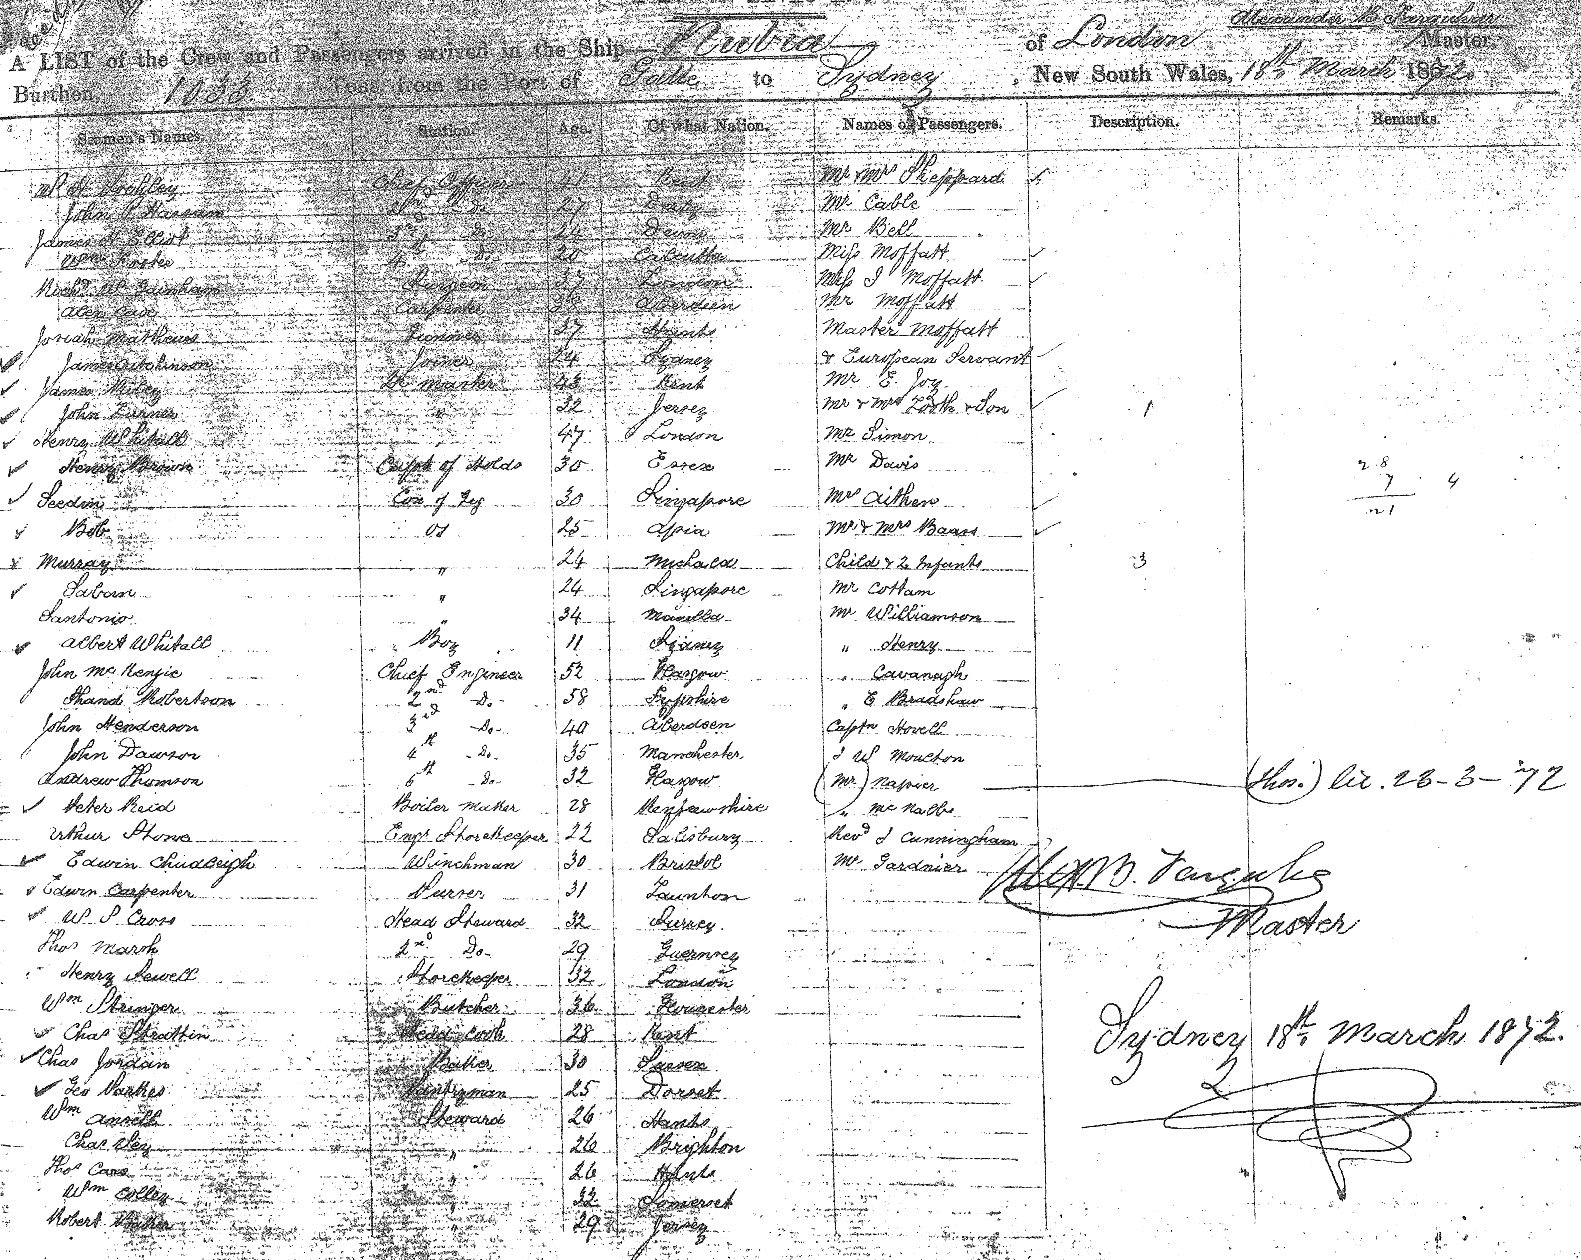 Alexander B. Farquhar
A LIST of the Crew and Passengers arrived in the Ship Nubia of London Master,
Burthen, Tons, from the Port of Galle to Sydney, New South Wales, 18th March 1872
Seamen's Names. Station. Age. Of what Nation. Names of Passengers. Description. Remarks.
Chief Officer Kent Mr & Mrs Sheppard
John R Hassam 2nd Do 27 Mr Cable
James H Elliot 3rd Do 24 Devon Mr Bell
Wm Foster 4 Do 20 Calcutta Miss Moffatt
Richd W. Surgeon 37 London Miss J Moffatt
Alex Carpenter Aberdeen Mr Moffatt
Josiah Mathews 37 Hants Master Moffatt
James Aitchinson Joiner 24 Sydney & European Servant
James Master 43 Kent Mr E. Joy
John Turner " 32 Jersey Mr & Mrs Tooth & Son 1
Henry Whitall 47 London Mr Simon
Henry Brown Capt of Holds 30 Essex Mr Davis 28
7 4
21
Seedin 30 Singapore Mrs Aitken
Bob 25 Mr & Mrs Baars
Murray " 24 Child & 2 Infants 3
Sabam " 24 Singapore Mr Cottam
Santonio " 34 Manilla Mr Williamson
Albert Whitall Boy 11 Sydney " Henry
John McKenzie Chief Engineer 52 Glasgow " Cavanagh
Shand Robertson 2nd Do. 58 Fyfshire " E Bradshaw
John Henderson 3rd Do. 40 Aberdeen Captn Hovell
John Dawson 4th Do. 35 Manchester J W Moulton
Andrew Thomson 5th Do. 32 Glasgow (Mr) Napier (Thos.) lic. 23-3-'72
Peter Reid Boiler Maker 28 Renfrewshire " McNalbe
Arthur Stowe Engr Storekeeper 22 Salisbury Revd J Cunningham
Edwin Chudleigh Winchman 30 Bristol Mr Gardnier
Alex B. Farquhar
Master
Edwin Carpenter Purser 31 Taunton
W S Cross Head Steward 32 Surrey
Thos Marsh 2nd Do. 29 Guernsey
Henry Sewell Storekeeper 32 London
Wm Stringer Butcher 36 Gloucester
Chas Strattin Head Cook 28 Kent
Sydney 18th March 1872.
Chas Jordan Baker 30 Sussex
Geo Parkes Pantryman 25 Dorset
Wm Annell Steward 26 Hants
Chas " 26 Brighton
Thos " 26 Hants
Wm Colley " 32 Somerset
Robert " 29 Jersey